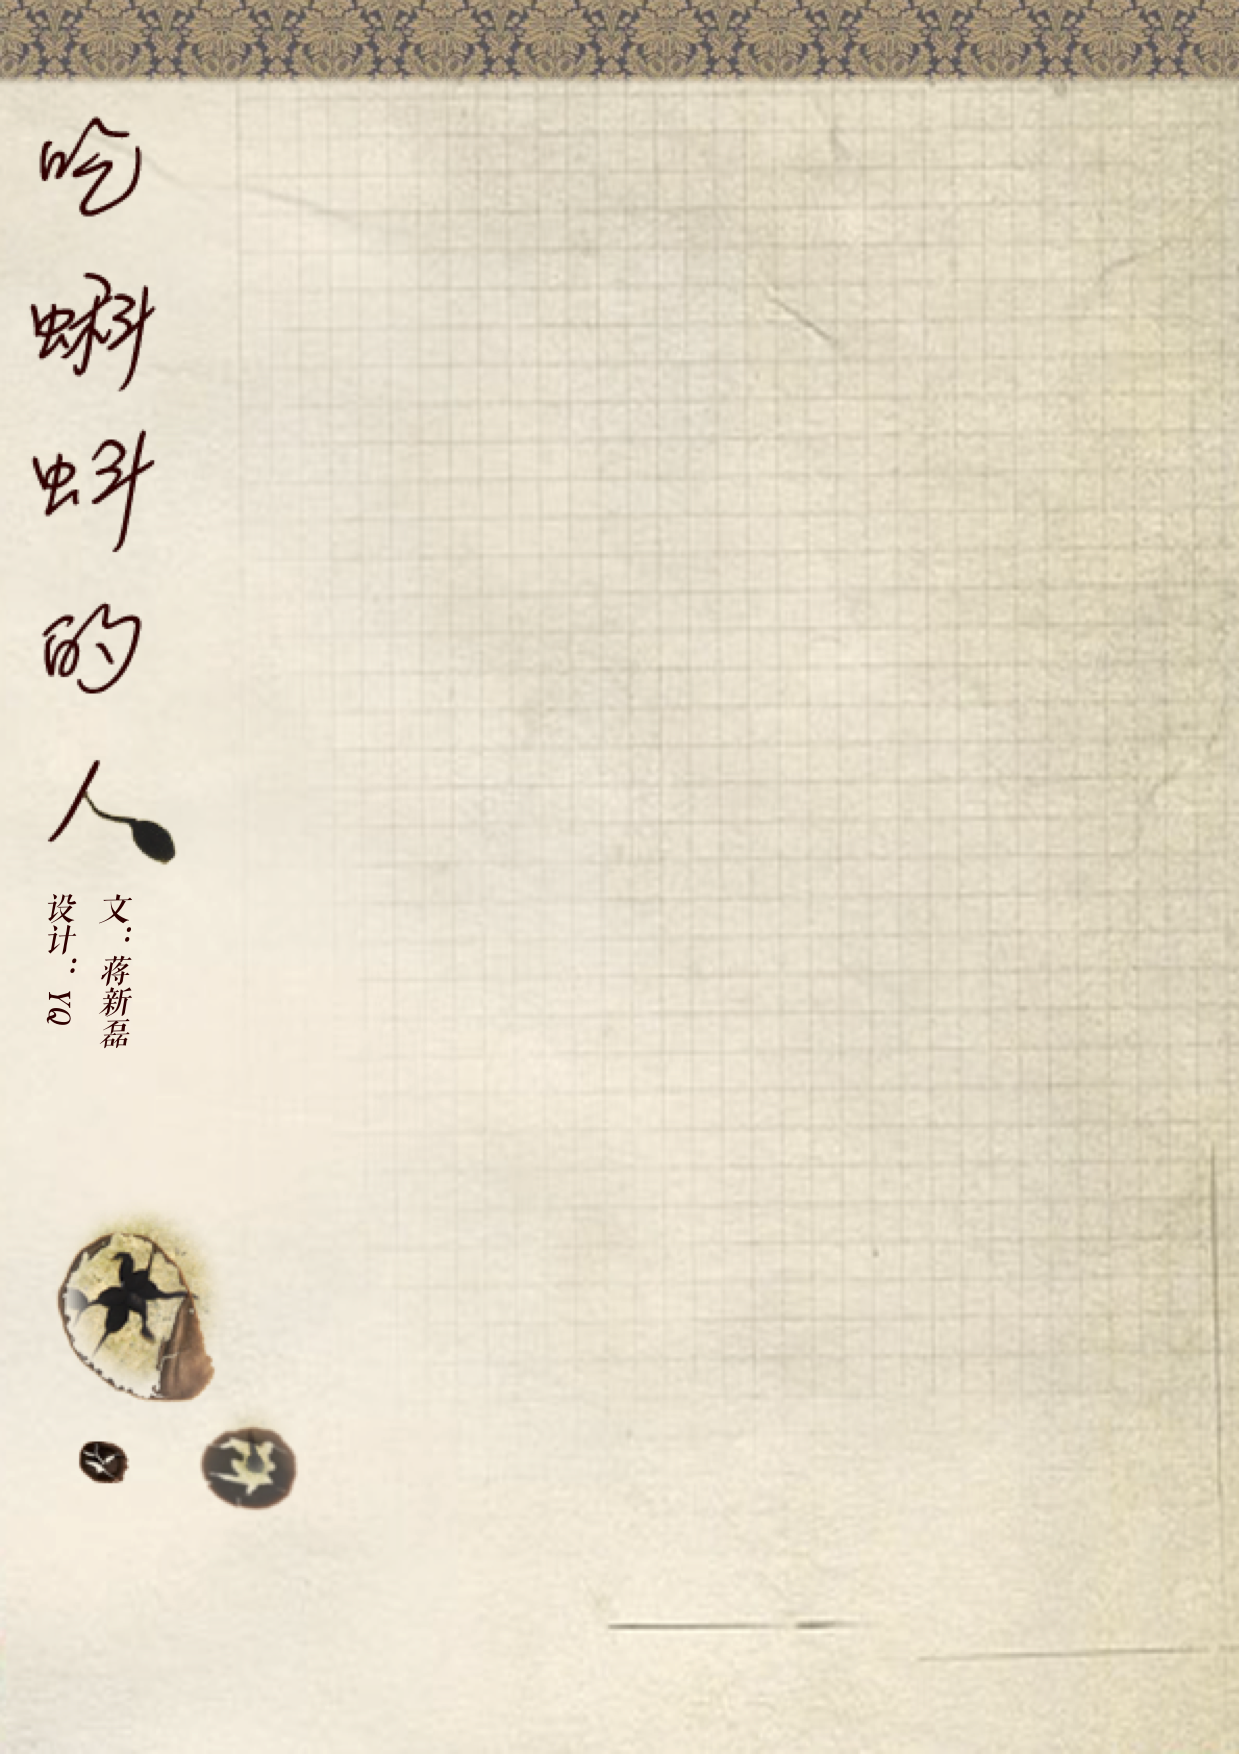 吃蝌蚪的人
文：蒋新磊
设计：YQ